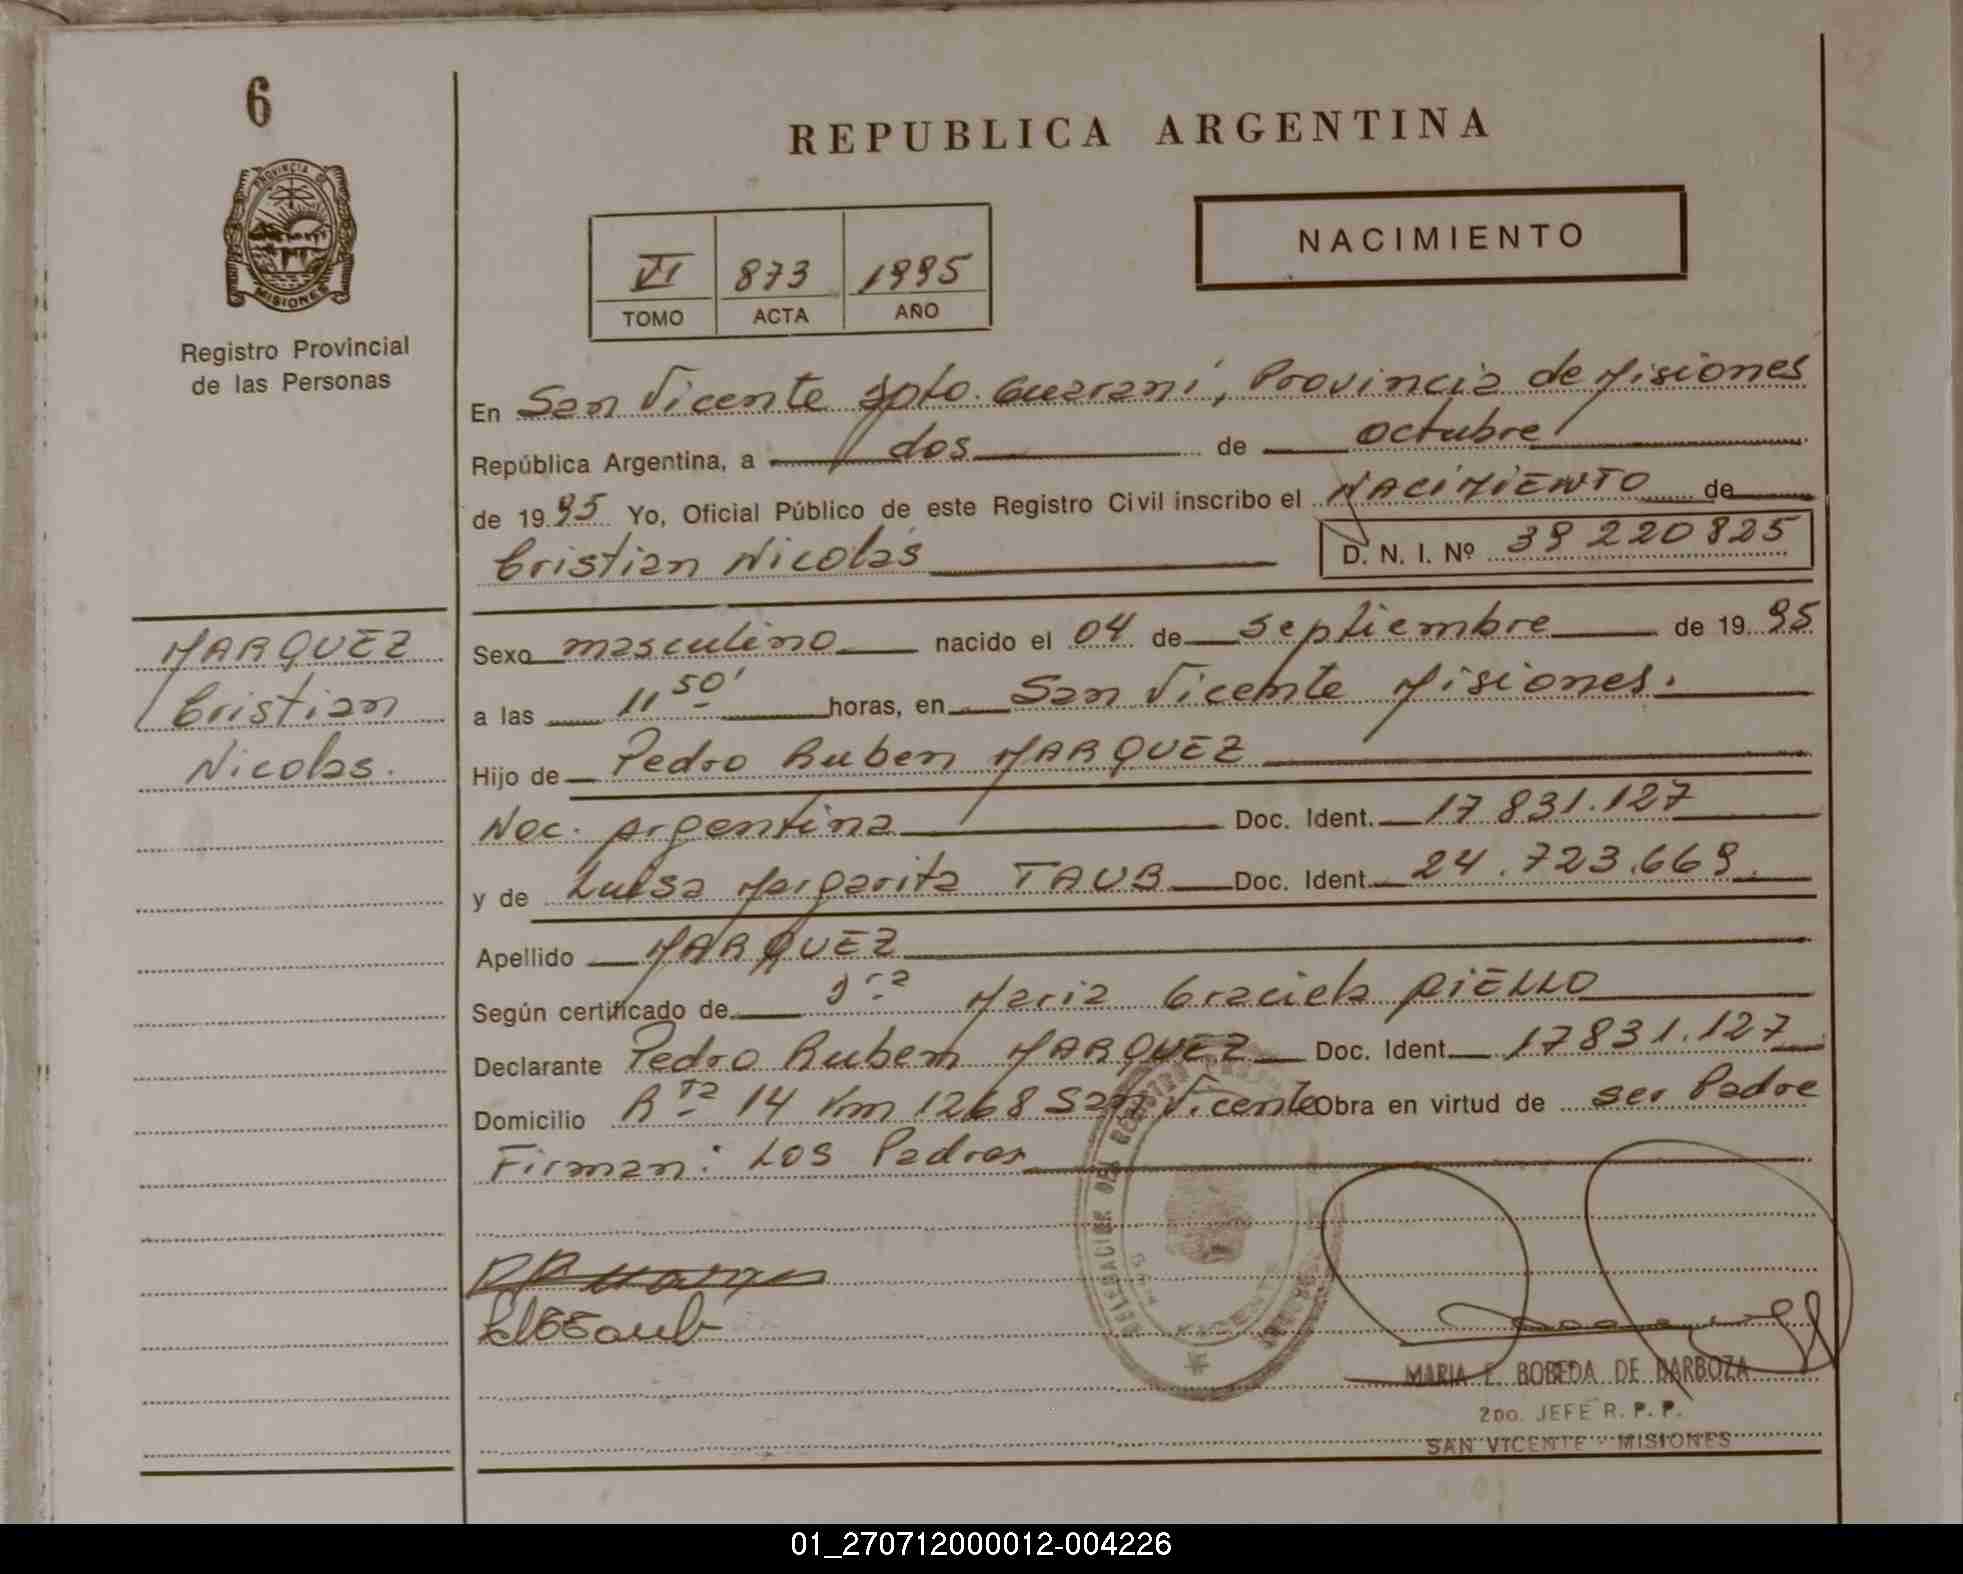 6
REPUBLICA ARGENTINA
PROVINCIA DE
MISIONES
Registro Provincial
de las Personas
VI 873 1995
TOMO ACTA AÑO
NACIMIENTO
En San Vicente Dpto. Guaraní, Provincia de Misiones
República Argentina, a dos de octubre
de 1995 Yo, Oficial Público de este Registro Civil inscribo el NACIMIENTO de
Cristian Nicolás
D. N. I. Nº 39 220 825
MARQUEZ
Cristian
Nicolas.
Sexo masculino nacido el 04 de septiembre de 1995
a las 11 50' horas, en San Vicente Misiones.
Hijo de Pedro Ruben MARQUEZ
Nac. Argentina Doc. Ident. 17 831.127
y de Luisa Margarita TAUB Doc. Ident. 24.723.669.
Apellido MARQUEZ
Según certificado de Dra Maria Graciela
Declarante Pedro Ruben MARQUEZ Doc. Ident. 17 831.127
Domicilio Rta 14 Km 1268 San Vicente Obra en virtud de ser Padre
Firman: Los Padres
MARIA E. BOBEDA DE BARBOZA
2DO. JEFE R. P. P.
SAN VICENTE - MISIONES
01_270712000012-004226